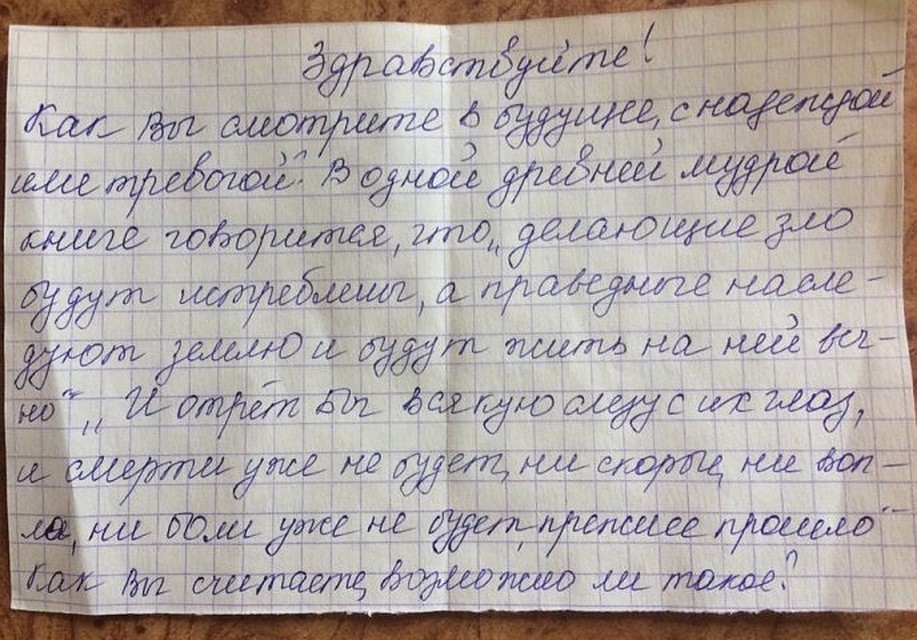 Здравствуйте!
Как Вы смотрите в будущее, с надеждой
или тревогой? В одной древней мудрой
книге говорится, что „делающие зло
будут истреблены, а праведные насле-
дуют землю и будут жить на ней веч-
но" „И отрёт Бог всякую слезу с их глаз,
и смерти уже не будет, ни скорби, ни воп-
ля, ни боли уже не будет, прежнее прошло"
Как Вы считаете, возможно ли такое?